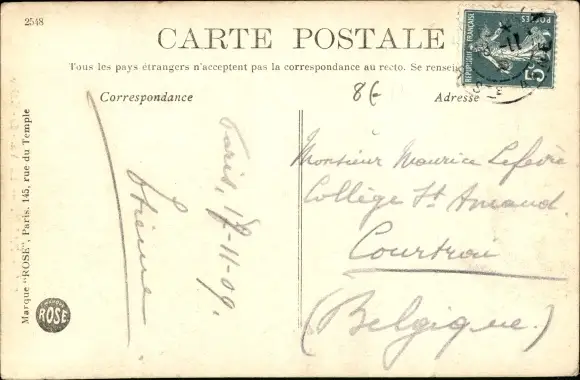 2548
CARTE POSTALE
Tous les pays étrangers n'acceptent pas la correspondance au recto. Se rensei
Correspondance
Adresse
8€
RÉPUBLIQUE FRANÇAISE
POSTES
5
Paris, 18-11-09.
Etienne
Monsieur Maurice Lefevre
Collège St Amand.
Courtrai
(Belgique.)
Marque "ROSE", Paris. 145, rue du Temple
ROSE